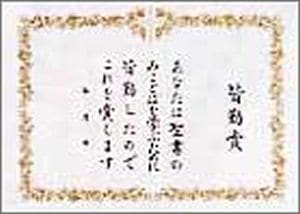 皆勤賞
あなたは聖書の
みことばを学ぶために
皆勤したので
これを賞します